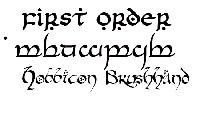 First Order
Hobbiton Brushhand